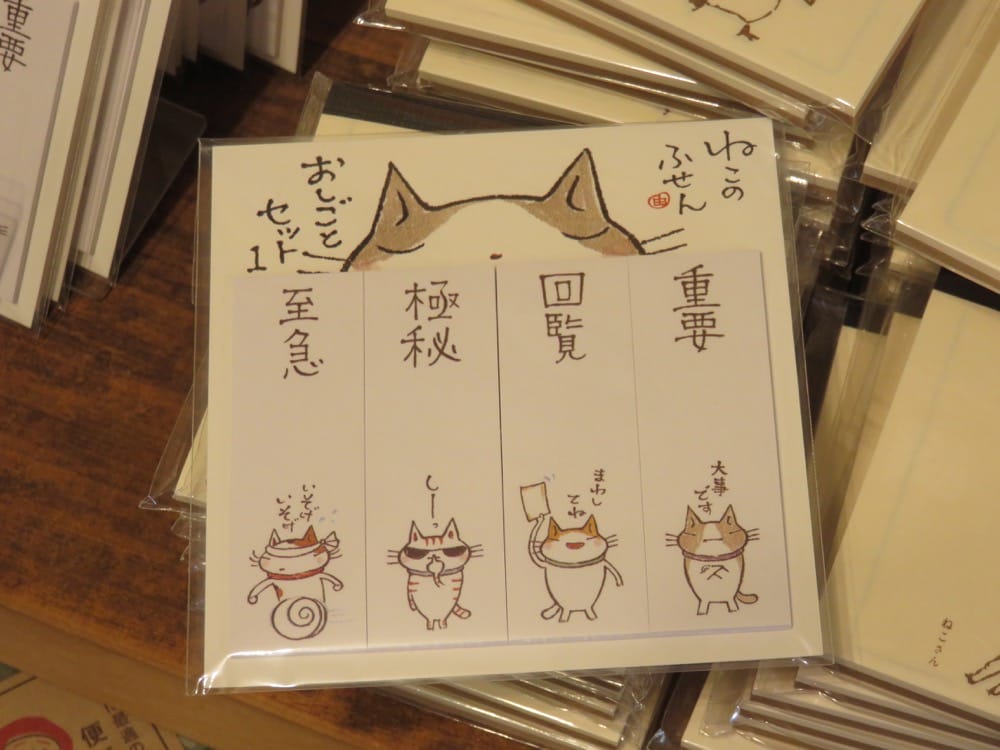 重要
ねこの
ふせん
おしごと
セット
1
重要
回覧
極秘
至急
大事
です
まわし
てね
しーっ
いそげ
いそげ
ねこさん